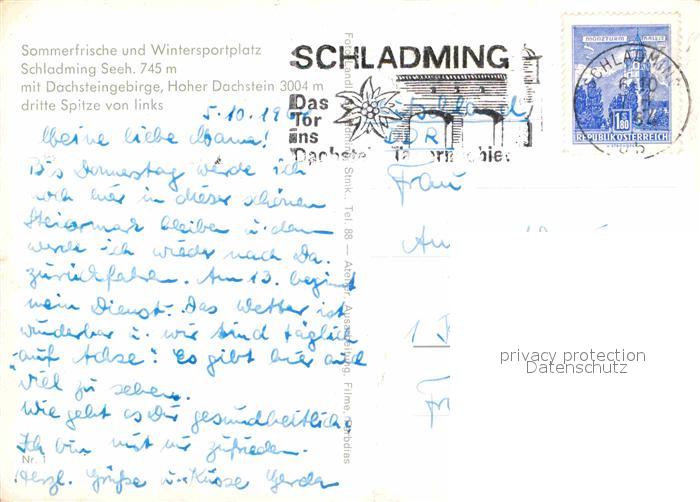 Sommerfrische und Wintersportplatz
Schladming Seeh. 745 m
mit Dachsteingebirge, Hoher Dachstein 3004 m
dritte Spitze von links
5.10.19
Meine liebe Mama!
Bis Donnerstag werde ich
noch hier in dieser schönen
Steiermark bleiben u. dann
werde ich wieder nach Da.
zurückfahren. Am 13. beginnt
mein Dienst. Das Wetter ist
wunderbar u. wir sind täglich
"auf Achse". Es gibt hier auch
viel zu sehen.
Wie geht es Dir gesundheitlich.
Ich bin mit mir zufrieden.
Herzl. Grüße u. Küsse Gerda
Nr. 1
Stmk., Tel. 88 — Atelier, Ausarbeitung, Filme, Farbdias
SCHLADMING
Das
Tor
ins
DDR
Frau
An
1
SCHLADMING
MÜNZTURM HALL I.T.
1.80
REPUBLIK ÖSTERREICH
privacy protection
Datenschutz